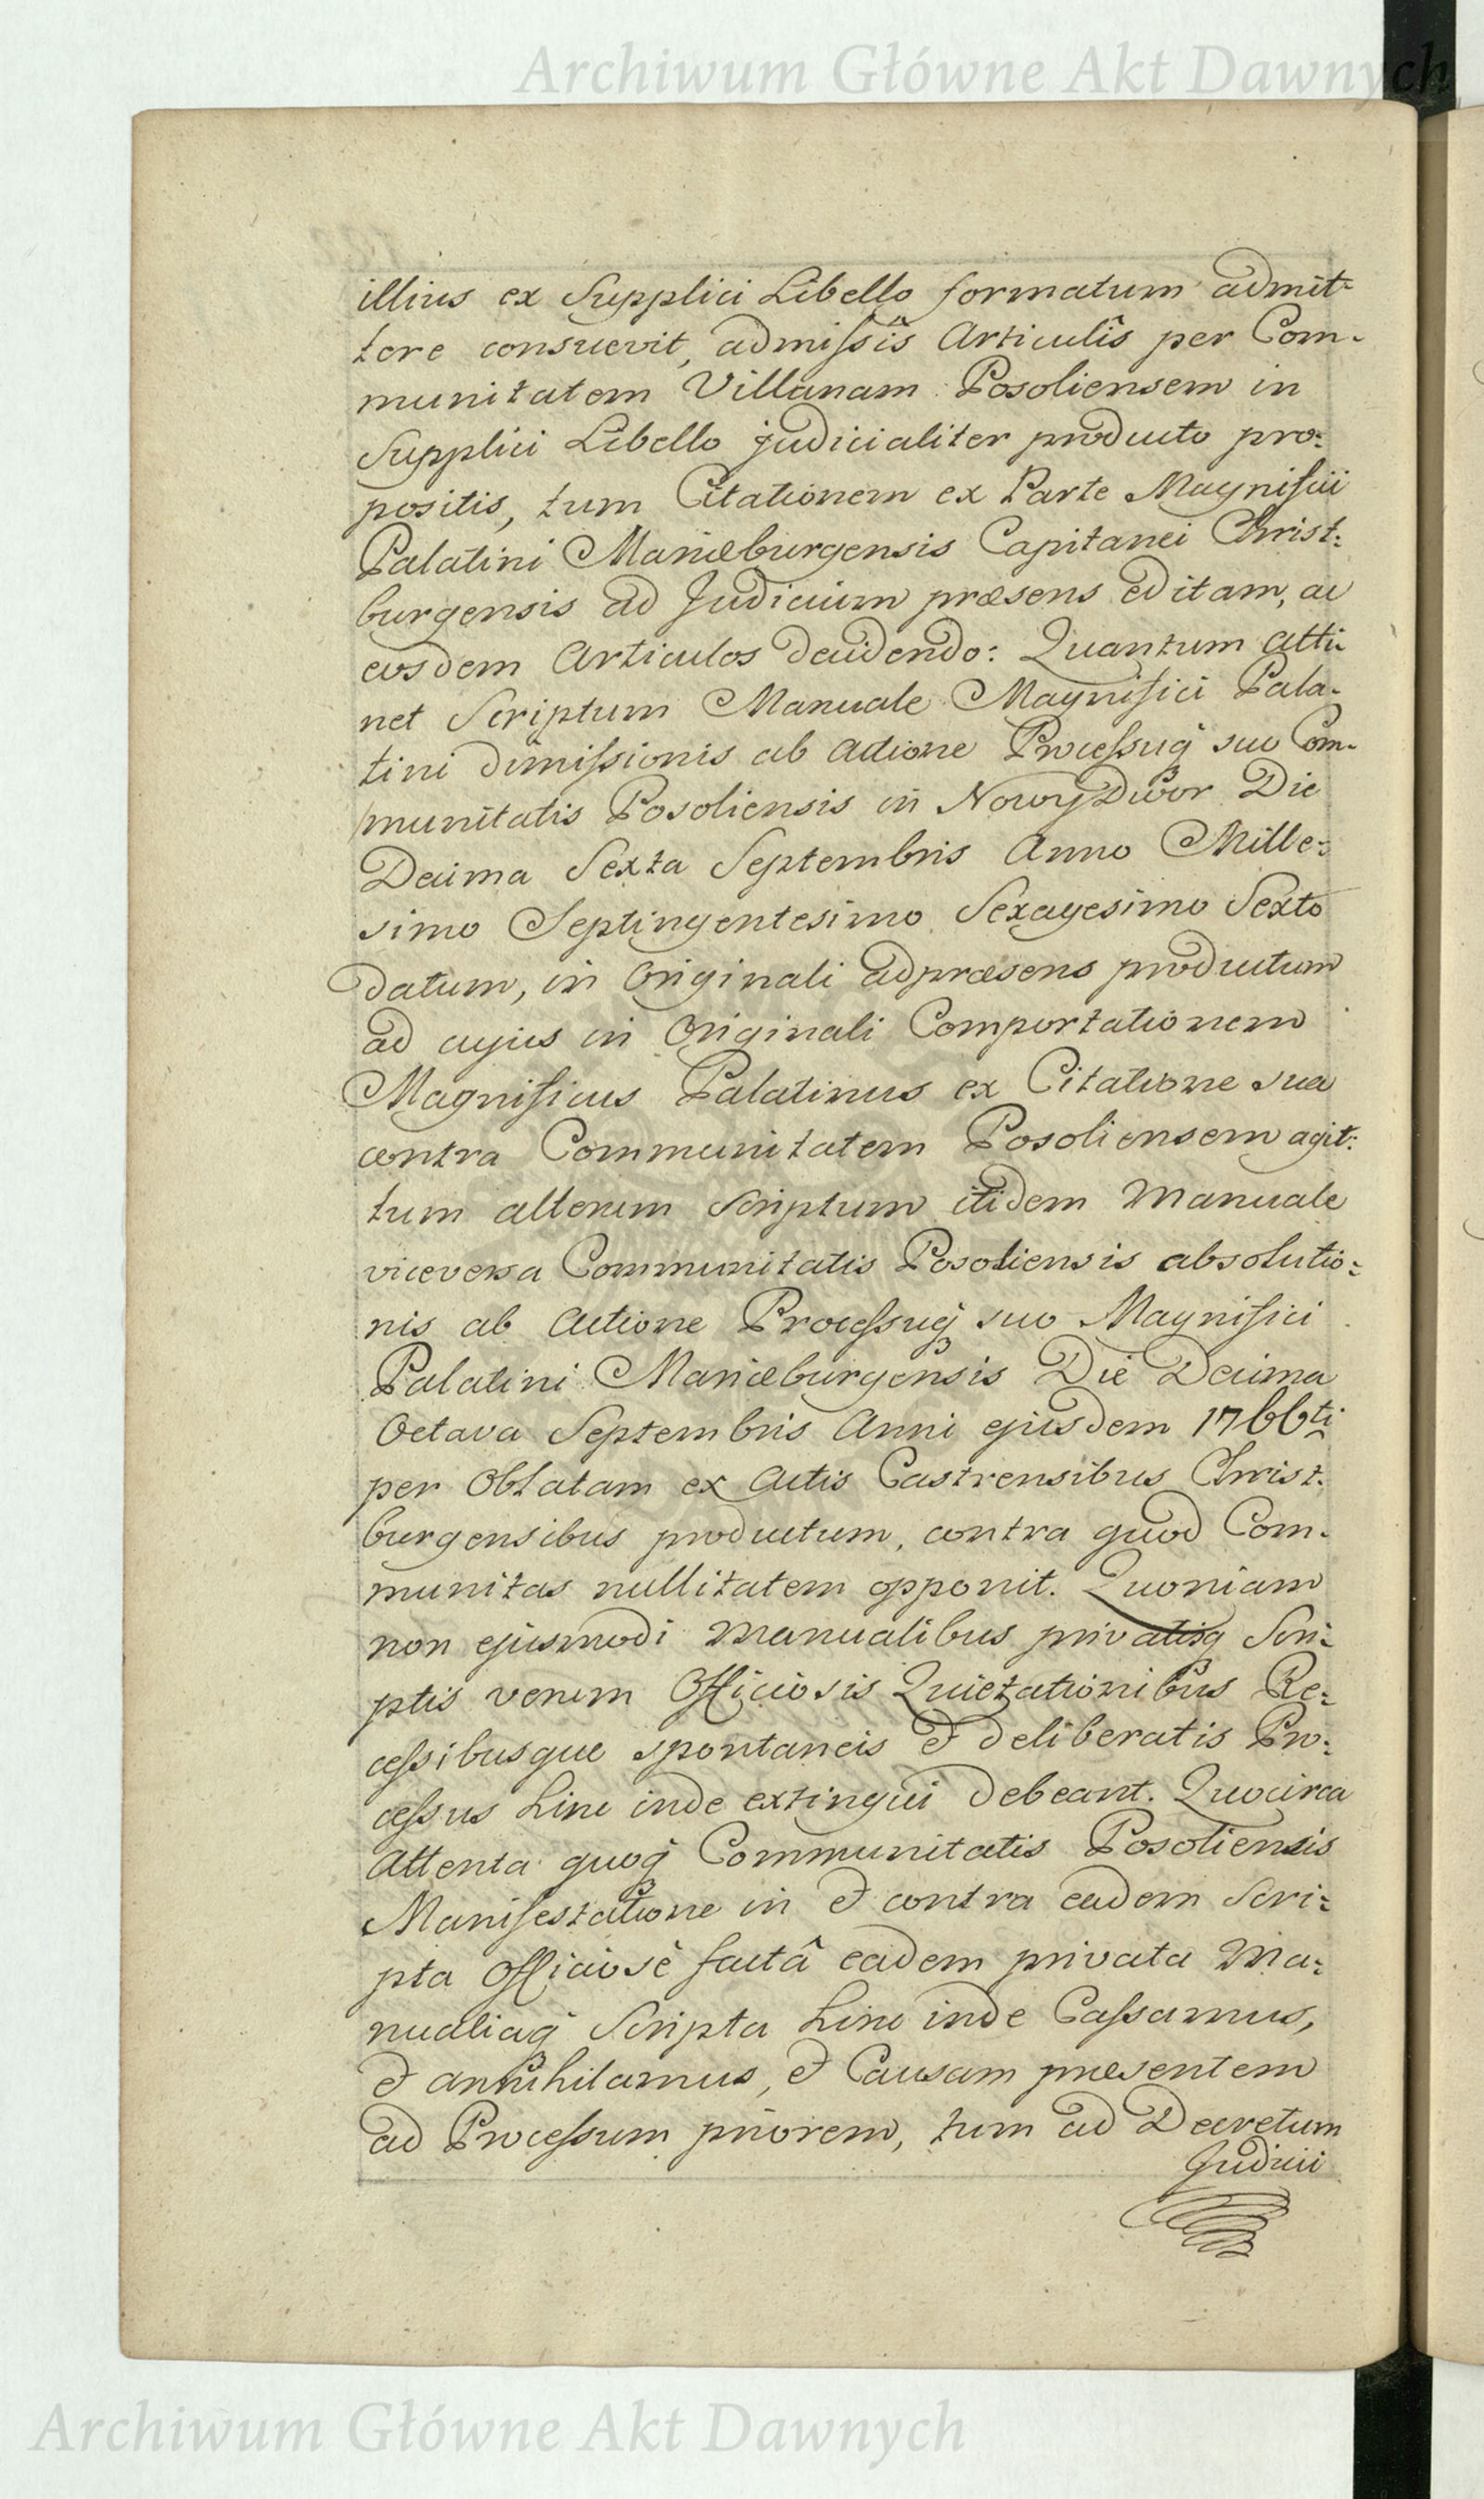 Archiwum Główne Akt Dawnych
illius ex Supplici Libello formatum admit-
tere consuevit, admiſsîs Articulîs per Com-
munitatem Villanam Posoliensem in
Supplici Libello judicialiter producto pro:
positis, tum Citationem ex Parte Magnifici
Palatini Mariæburgensis Capitanei Christ:
burgensis ad Judicium præsens editam, ac
eosdem Articulos decidendo: Quantum atti-
net Scriptum Manuale Magnifici Pala-
tini dimiſsionis ab Actione Proceſsuq́ suo Com-
munitatis Posoliensis in Nowy Dwor Die
Decima Sexta Septembris Anno Mille:
simo Septingentesimo Sexagesimo Sexto
datum, in Originali adpræsens productum
ad cujus in Originali Comportationem
Magnificus Palatinus ex Citatione sua
contra Communitatem Posoliensem agit:
tum alterum Scriptum itidem Manuale
viceversa Communitatis Posoliensis absolutio:
nis ab Actione Proceſsuq́ suo Magnifici
Palatini Mariæburgensis Die Decima
Octava Septembris Anni ejusdem 1766ti
per Oblatam ex Actis Castrensibus Christ:
burgensibus productum, contra quod Com-
munitas nullitatem opponit. Quoniam
non ejusmodi Manualibus privatisq Scri:
ptis verum Officiosis Quietationibus Re:
ceſsibusque spontaneis et deliberatis Pro:
ceſsus hinc inde extingui debeant. Quocirca
Attenta quoq́ Communitatis Posoliensis
Manifestatione in et contra eadem Scri:
pta Officiosè factâ eadem privata Ma:
nualiaq́ Scripta hinc inde Caſsamus,
et annihilamus, et Causam præsentem
ad Proceſsum priorem, tum ad Decretum
Judicii
Archiwum Główne Akt Dawnych